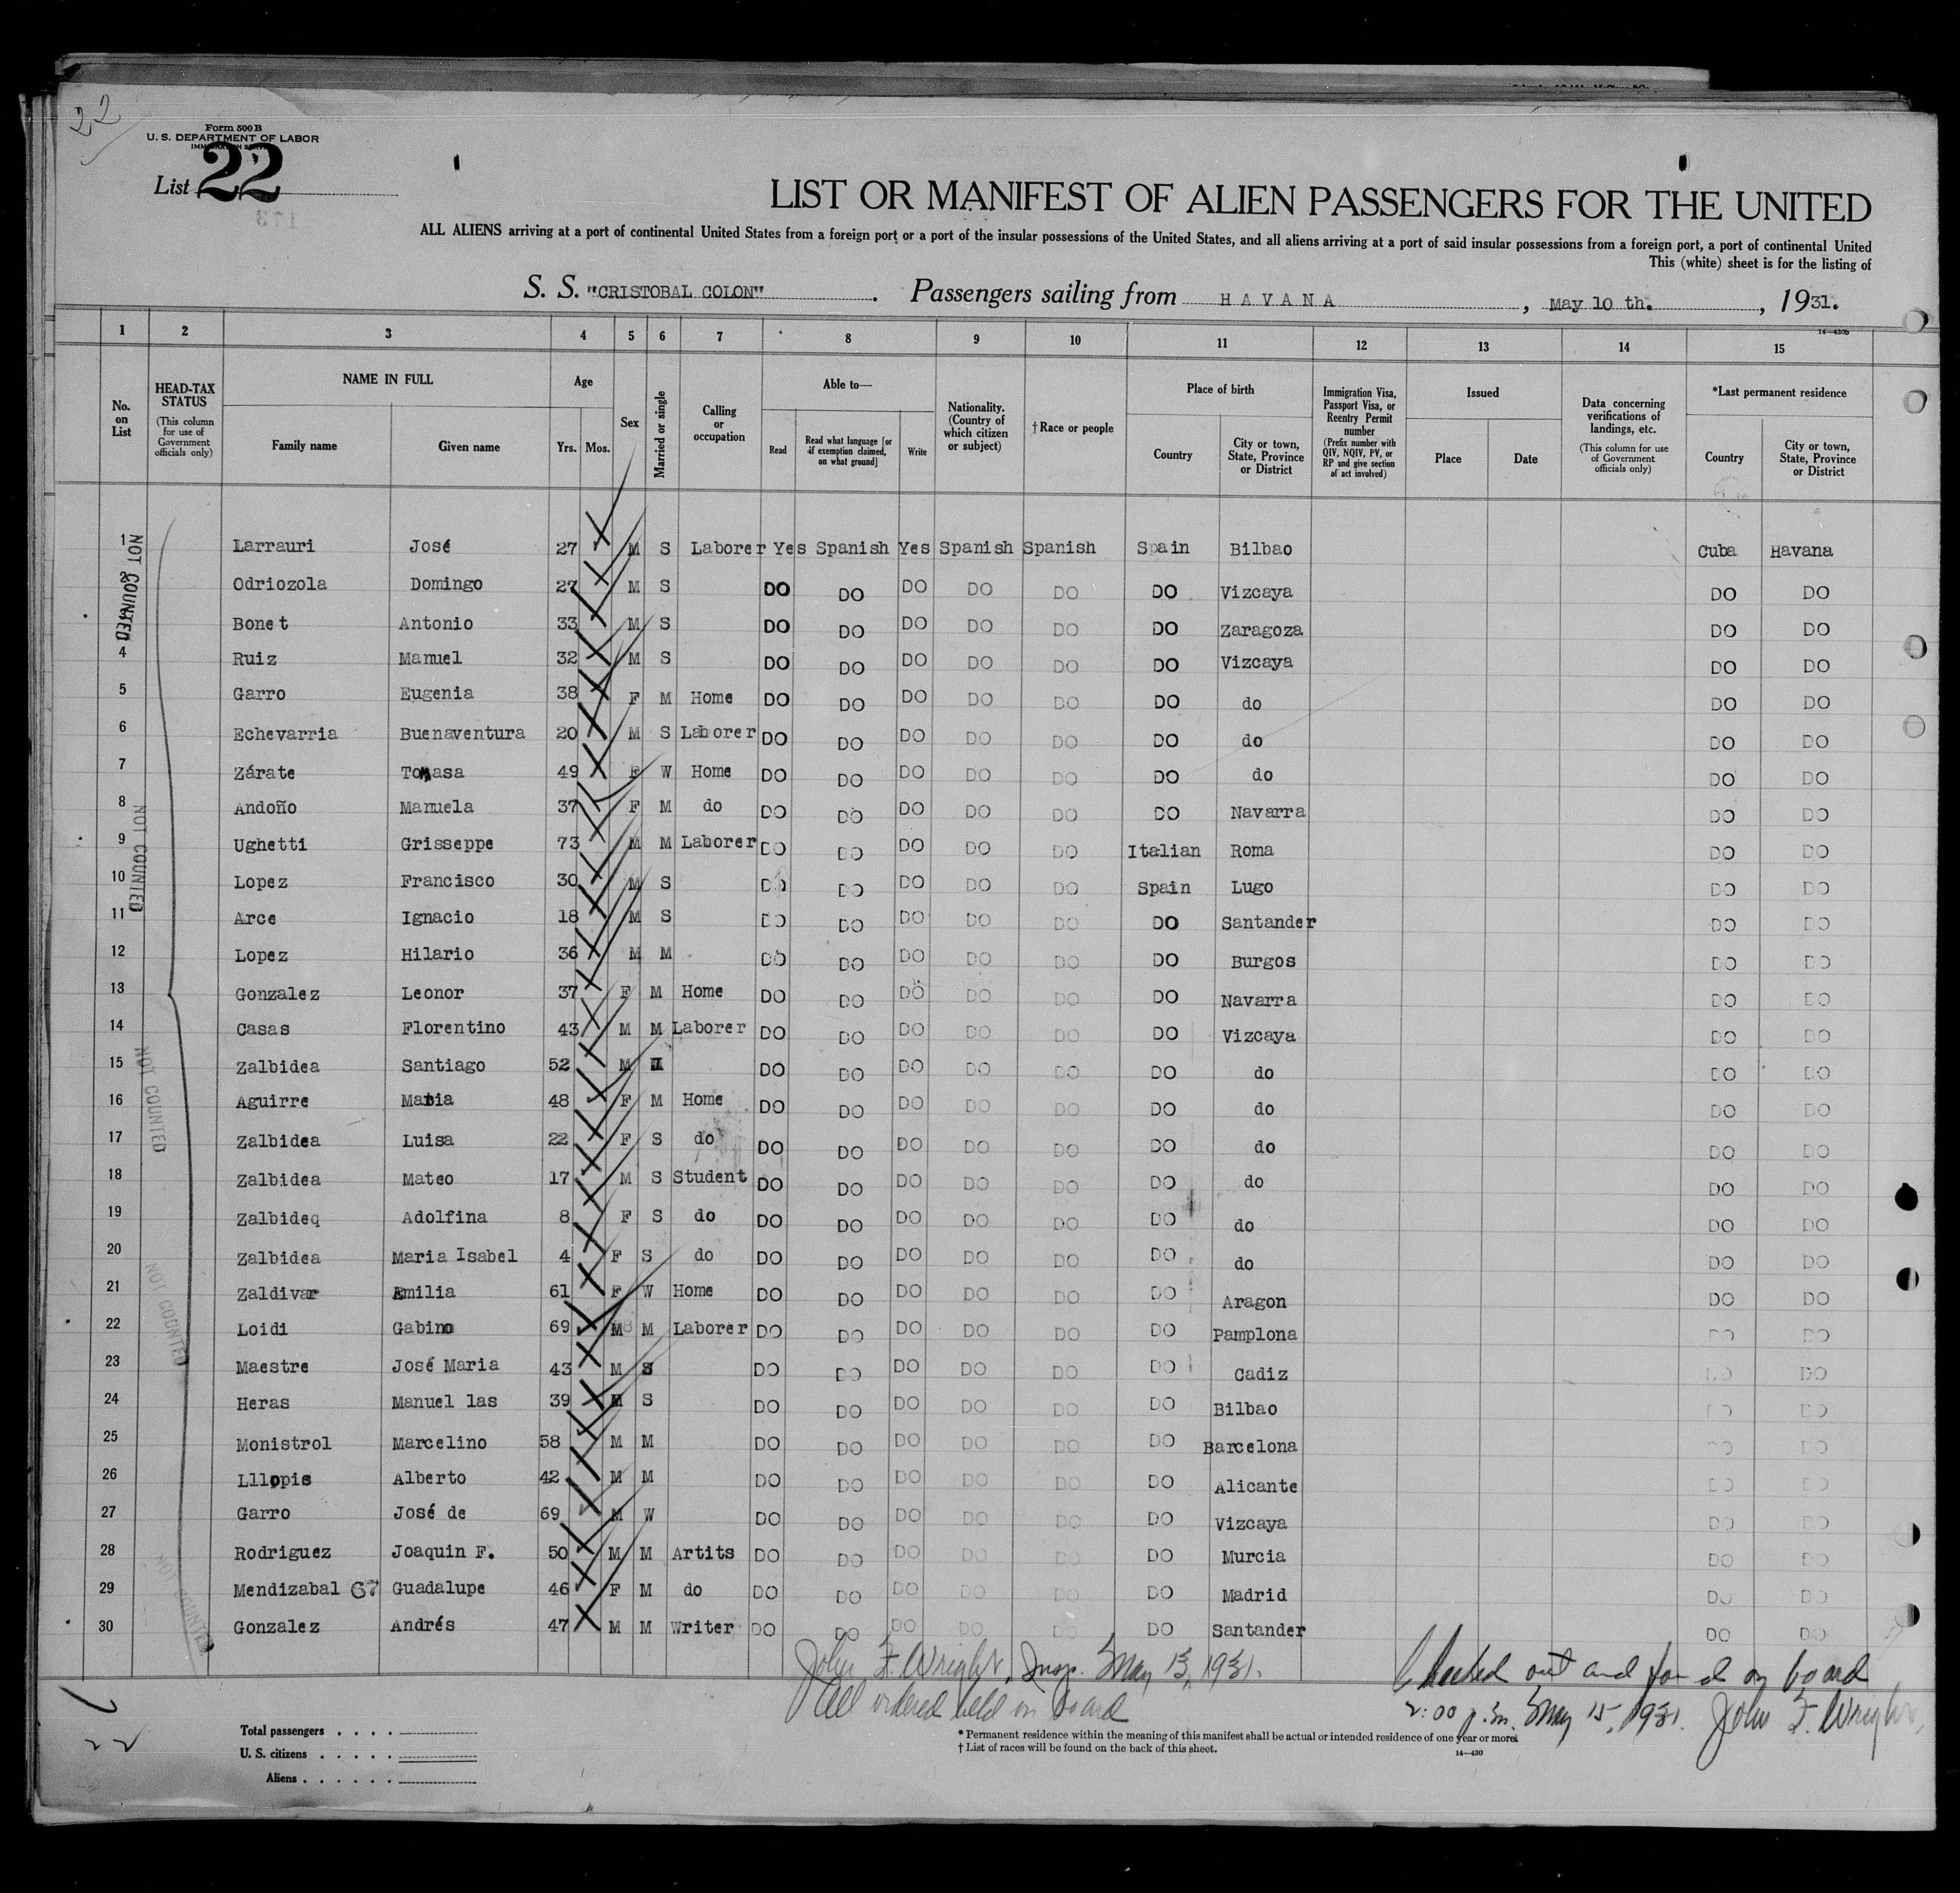 22
Form 500 B
U. S. DEPARTMENT OF LABOR
IMMIGRATION SERVICE
List 22
173
LIST OR MANIFEST OF ALIEN PASSENGERS FOR THE UNITED
ALL ALIENS arriving at a port of continental United States from a foreign port or a port of the insular possessions of the United States, and all aliens arriving at a port of said insular possessions from a foreign port, a port of continental United
This (white) sheet is for the listing of
S. S. "CRISTOBAL COLON". Passengers sailing from HAVANA, May 10 th., 1931.
14—430b
1 2 3 4 5 6 7 8 9 10 11 12 13 14 15
No. on List
HEAD-TAX STATUS (This column for use of Government officials only)
NAME IN FULL
Family name Given name
Age
Yrs. Mos.
Sex
Married or single
Calling or occupation
Able to—
Read Read what language [or if exemption claimed, on what ground] Write
Nationality. (Country of which citizen or subject)
†Race or people
Place of birth
Country City or town, State, Province or District
Immigration Visa, Passport Visa, or Reentry Permit number (Prefix number with QIV, NQIV, PV, or RP and give section of act involved)
Issued
Place Date
Data concerning verifications of landings, etc. (This column for use of Government officials only)
*Last permanent residence
Country City or town, State, Province or District
1 Larrauri José 27 M S Laborer Yes Spanish Yes Spanish Spanish Spain Bilbao Cuba Havana
2 Odriozola Domingo 27 M S DO DO DO DO DO DO Vizcaya DO DO
3 Bonet Antonio 33 M S DO DO DO DO DO DO Zaragoza DO DO
4 Ruiz Manuel 32 M S DO DO DO DO DO DO Vizcaya DO DO
5 Garro Eugenia 38 F M Home DO DO DO DO DO DO do DO DO
6 Echevarria Buenaventura 20 M S Laborer DO DO DO DO DO DO do DO DO
7 Zárate Tomasa 49 F W Home DO DO DO DO DO DO do DO DO
8 Andoño Manuela 37 F M do DO DO DO DO DO DO Navarra DO DO
9 Ughetti Grisseppe 73 M M Laborer DO DO DO DO DO Italian Roma DO DO
10 Lopez Francisco 30 M S DO DO DO DO DO Spain Lugo DO DO
11 Arce Ignacio 18 M S DO DO DO DO DO DO Santander DO DO
12 Lopez Hilario 36 M M DO DO DO DO DO DO Burgos DO DO
13 Gonzalez Leonor 37 F M Home DO DO DO DO DO DO Navarra DO DO
14 Casas Florentino 43 M M Laborer DO DO DO DO DO DO Vizcaya DO DO
15 Zalbidea Santiago 52 M DO DO DO DO DO DO do DO DO
16 Aguirre Maria 48 F M Home DO DO DO DO DO DO do DO DO
17 Zalbidea Luisa 22 F S do DO DO DO DO DO DO do DO DO
18 Zalbidea Mateo 17 M S Student DO DO DO DO DO DO do DO DO
19 Zalbideq Adolfina 8 F S do DO DO DO DO DO DO do DO DO
20 Zalbidea Maria Isabel 4 F S do DO DO DO DO DO DO do DO DO
21 Zaldivar Emilia 61 F W Home DO DO DO DO DO DO Aragon DO DO
22 Loidi Gabino 69 M M Laborer DO DO DO DO DO DO Pamplona DO DO
23 Maestre José Maria 43 M S DO DO DO DO DO DO Cadiz DO DO
24 Heras Manuel las 39 M S DO DO DO DO DO DO Bilbao DO DO
25 Monistrol Marcelino 58 M M DO DO DO DO DO DO Barcelona DO DO
26 Lllopis Alberto 42 M M DO DO DO DO DO DO Alicante DO DO
27 Garro José de 69 M W DO DO DO DO DO DO Vizcaya DO DO
28 Rodriguez Joaquin F. 50 M M Artits DO DO DO DO DO DO Murcia DO DO
29 Mendizabal 67 Guadalupe 46 F M do DO DO DO DO DO DO Madrid DO DO
30 Gonzalez Andrés 47 M M Writer DO DO DO DO DO DO Santander DO DO
NOT COUNTED
NOT COUNTED
NOT COUNTED
NOT COUNTED
NOT COUNTED
John F. Wright, Insp. May 13, 1931.
All ordered held on board
Checked out and found on board
2:00 p.m. May 15, 1931. John F. Wright,
22
Total passengers
U. S. citizens
Aliens
* Permanent residence within the meaning of this manifest shall be actual or intended residence of one year or more.
† List of races will be found on the back of this sheet.
14—430